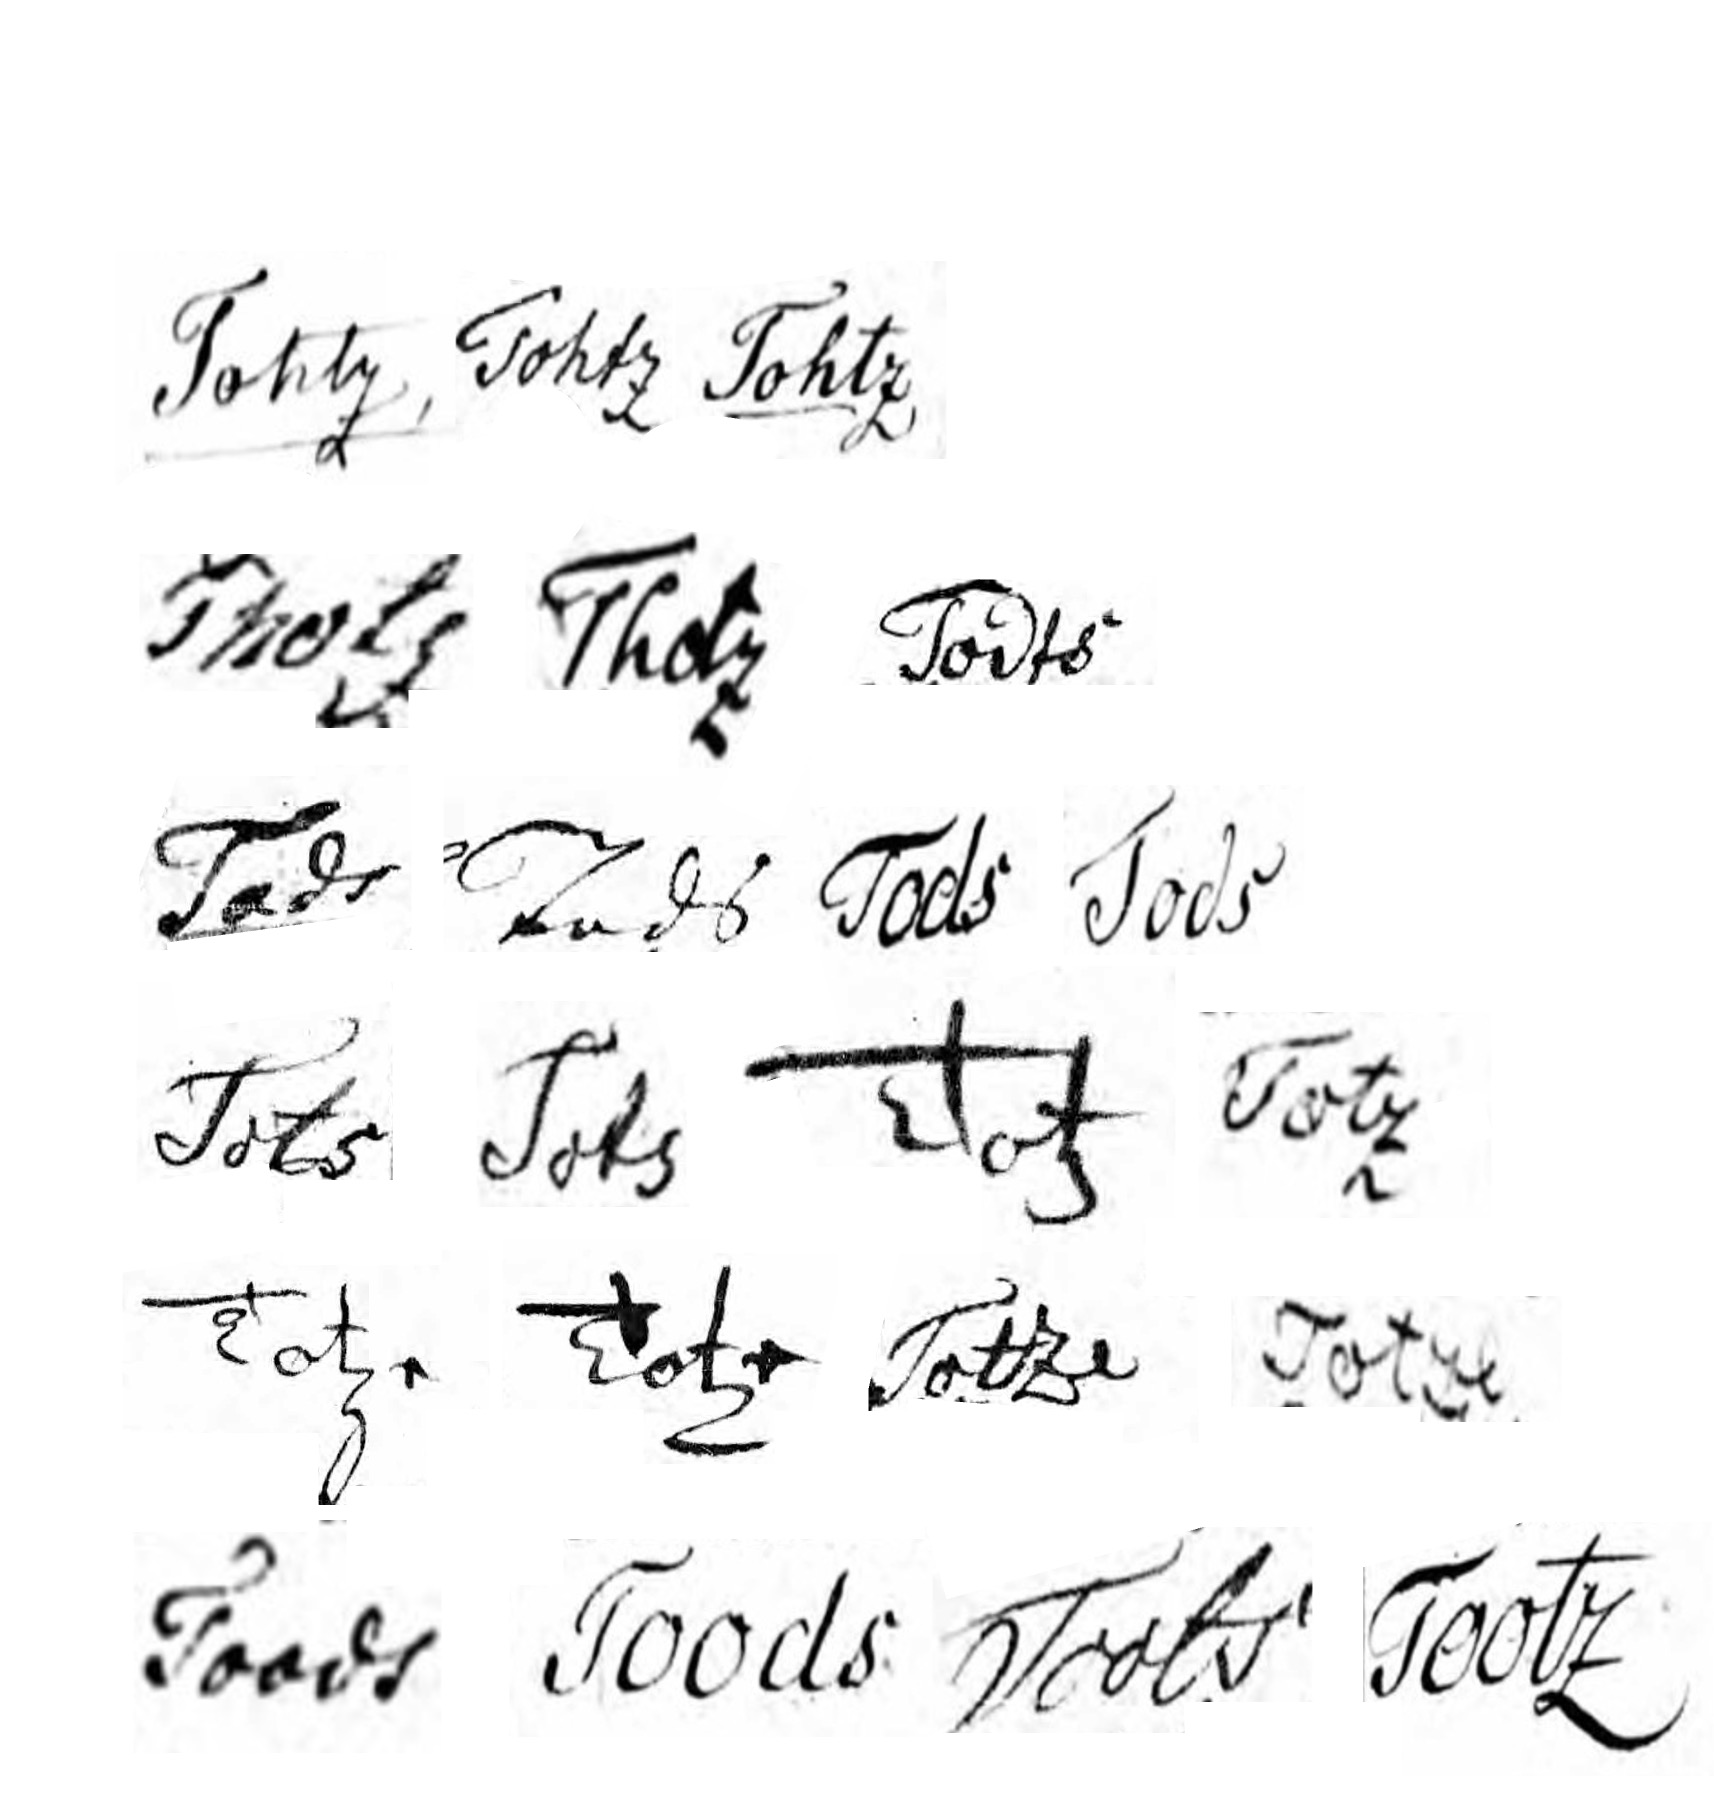 Tohtz, Tohtz Tohtz
Thotz Thotz Todts
Tads Tads Tods Tods
Tots Tots Totz Totz
Totze Totze Tottze Totze
Toods Toods Toots Tootz